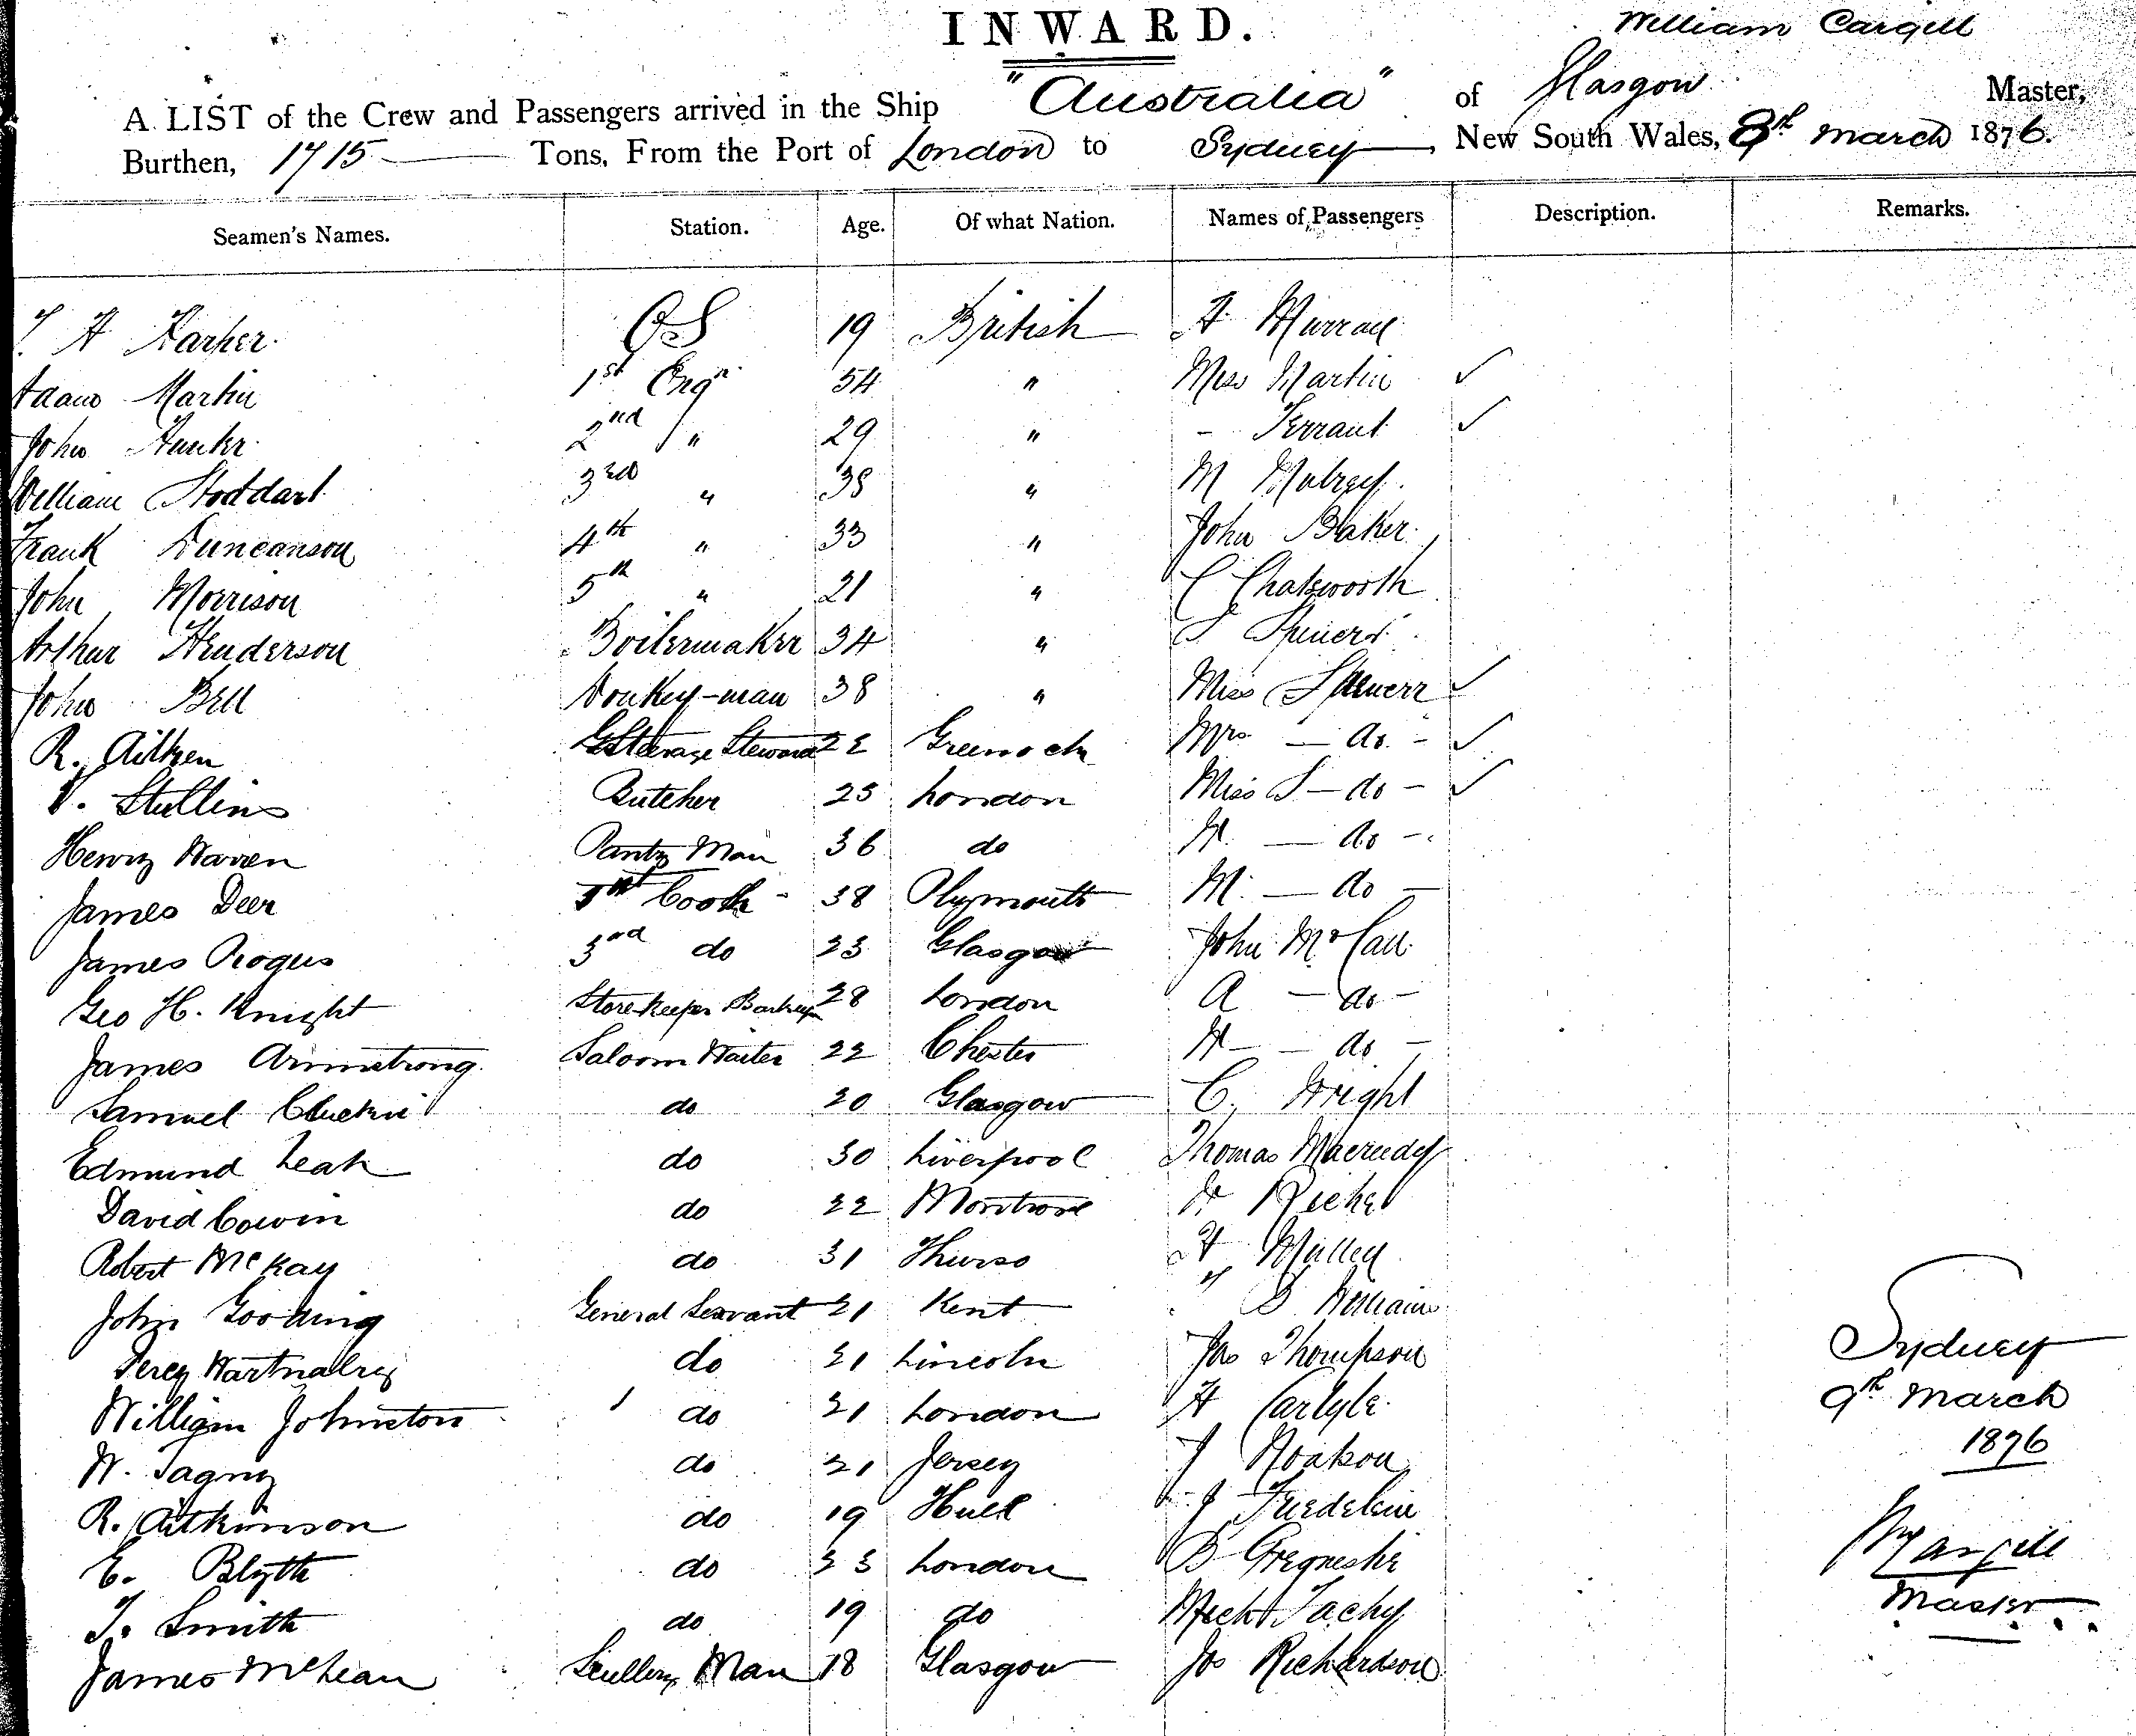 INWARD.
William Cargill
A LIST of the Crew and Passengers arrived in the Ship "Australia" of Glasgow Master,
Burthen, 1715 Tons, From the Port of London to Sydney, New South Wales, 8th March 1876.
Seamen's Names. Station. Age. Of what Nation. Names of Passengers Description. Remarks.
A OS 19 British A Murray
Adam Martin 1st Engr 54 " Miss Martin ✓
John Hunter 2nd " 29 " - ✓
William Stoddart 3rd " 38 " M
Frank Duncanson 4th " 33 " John Baker
John Morrison 5th " 21 " C Chatsworth
Arthur Henderson Boilermaker 34 "
John Bell Donkey-man 38 " Miss ✓
R. Aitken Steerage Steward 22 Greenock Mrs — do - ✓
Stullins Butcher 25 London Miss S — do - ✓
Henry Warren Pantry Man 36 do H. — do -
James Deer Cook - 38 Plymouth M. — do —
James Rogers 3rd do 23 Glasgow John McCall
Geo H. Knight Store-Keeper 28 London A — do -
James Armstrong Saloon Waiter 22 Chester H — do -
Samuel do 20 Glasgow C. Wright
Edmund Leah do 30 Liverpool Thomas Macreedy
David Cowin do 22 Montrose
Robert McKay do 31 Thurso
John Gooding General Servant 21 Kent
Percy do 21 Lincoln Jas Thompson
William Johnston do 21 London A Carlyle
W. do 21 Jersey J
R. Aitkinson do 19 Hull J
E. Blyth do 23 London B
T. Smith do 19 do
James McLean Scullery Man 18 Glasgow Jos Richardson
Sydney
9th March
1876
Cargill
Master